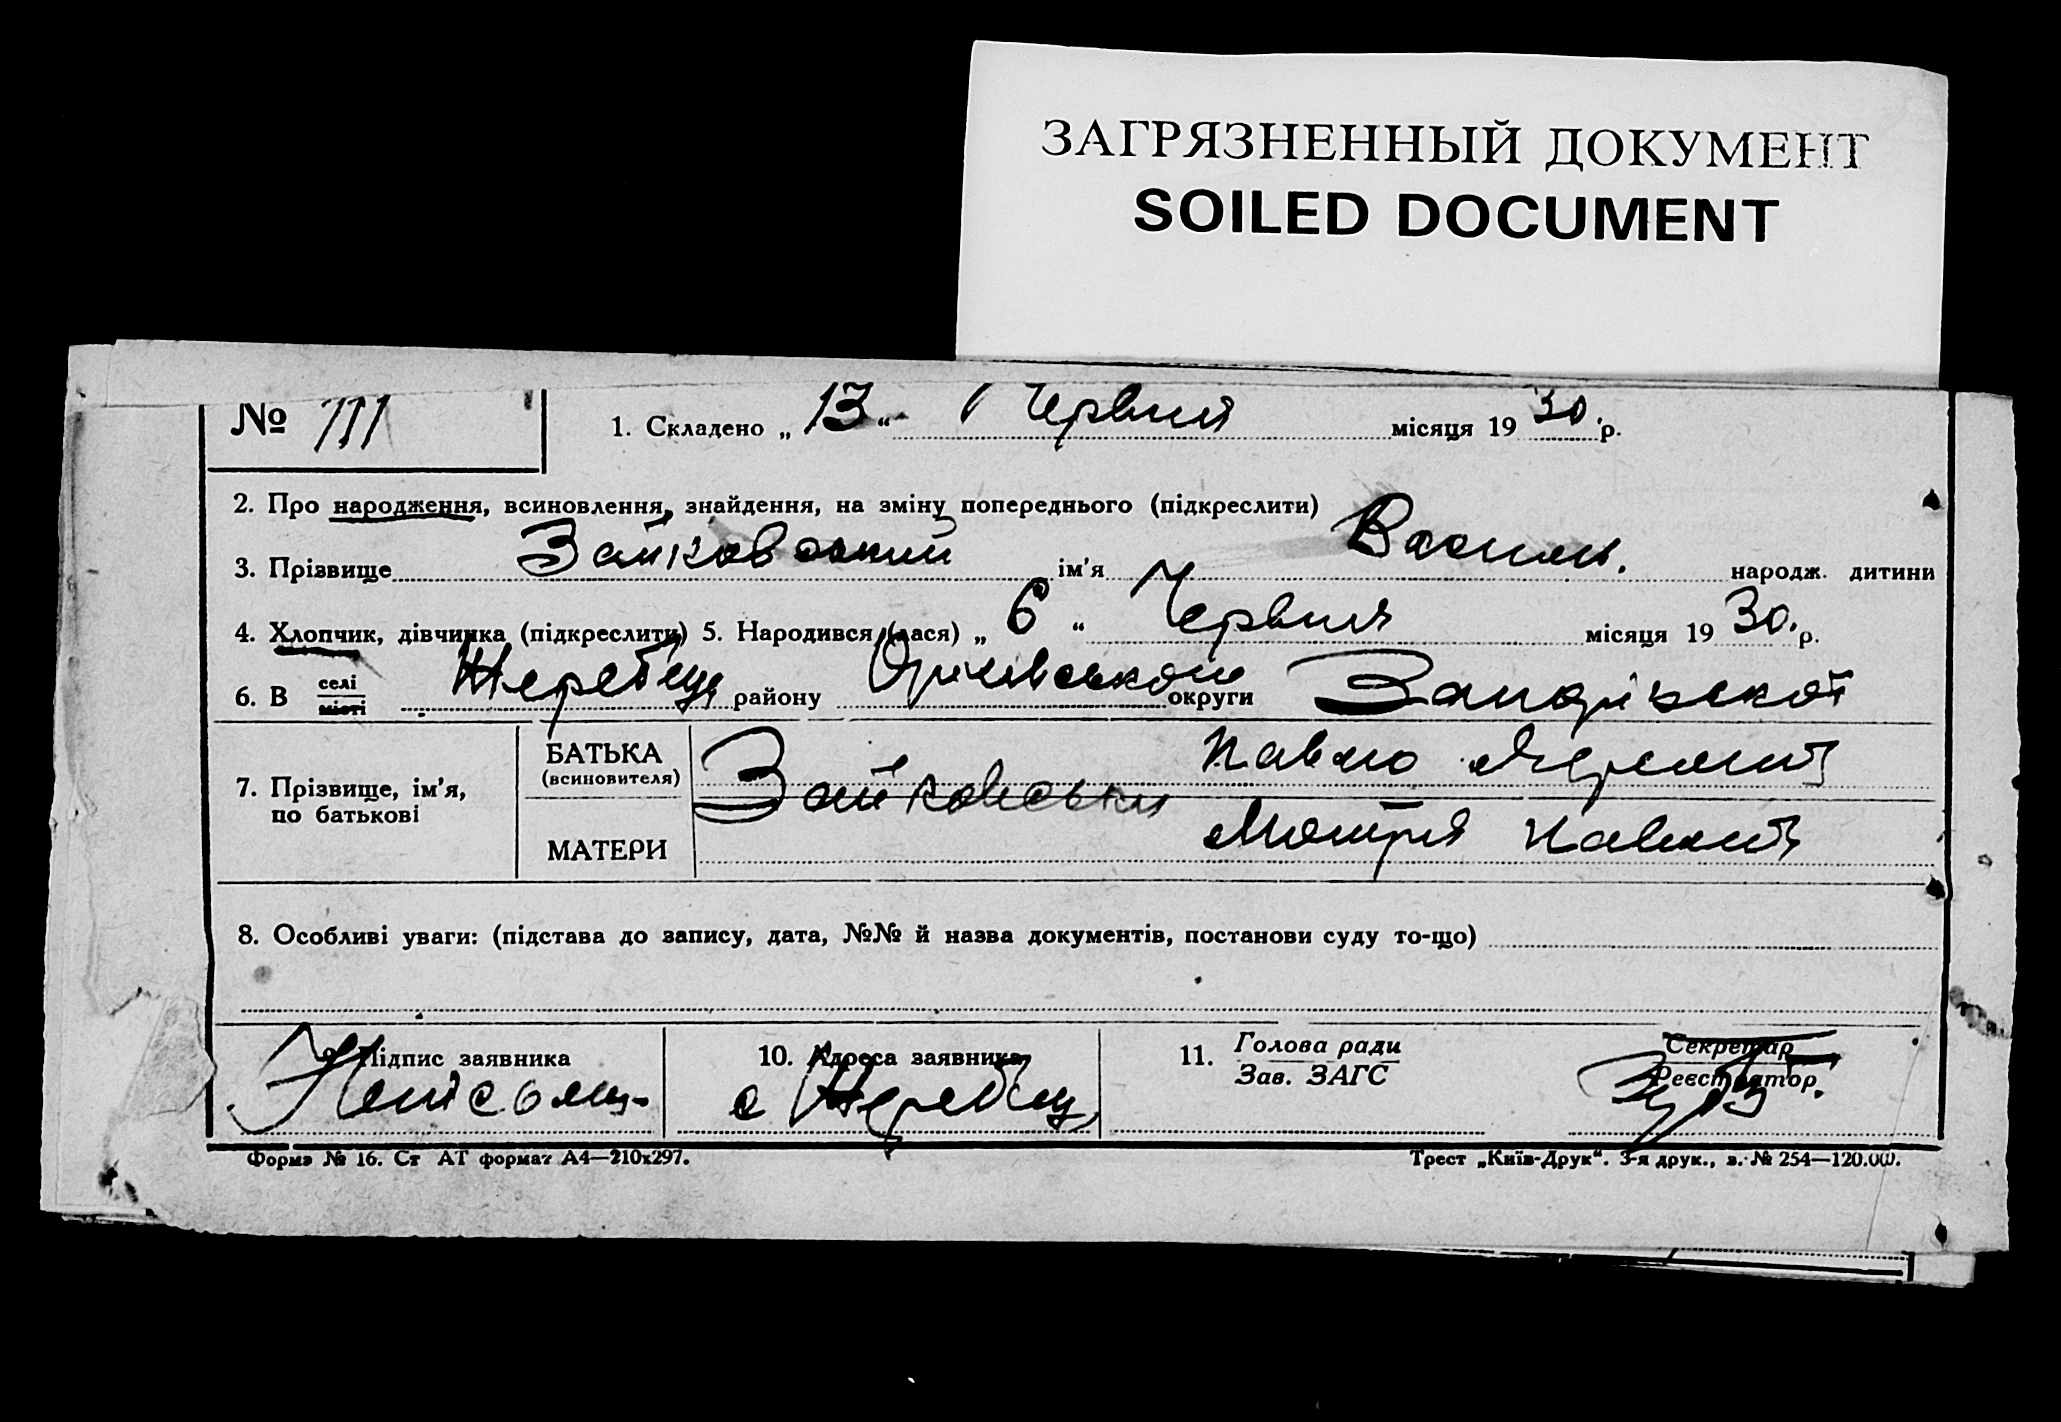 ЗАГРЯЗНЕННЫЙ ДОКУМЕНТ
SOILED DOCUMENT
№ 111
1. Складено „ 13 “ Червня місяця 19 30 р.
2. Про народження, всиновлення, знайдення, на зміну попереднього (підкреслити)
3. Прізвище Зайковський ім'я Василь. народж. дитини
4. Хлопчик, дівчинка (підкреслити) 5. Народився (лася) „ 6 “ Червня місяця 19 30. р.
6. В селі місті Жеребець району Оріхівського округи Запорізької
7. Прізвище, ім'я, по батькові
БАТЬКА (всиновителя) Павло
Зайковськи
МАТЕРИ Мотря Павлів
8. Особливі уваги: (підстава до запису, дата, №№ й назва документів, постанови суду то-що)
9. Підпис заявника
10. Адреса заявника
с Жеребець
11. Голова ради
Зав. ЗАГС
Секретар
Реєстратор.
Форма № 16. Ст АТ формат А4—210х297.
Трест „Київ-Друк“. 3-я друк., з. № 254—120.000.